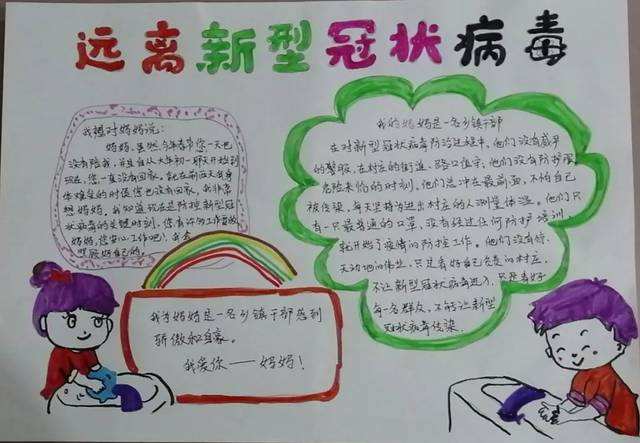 远离新型冠状病毒
我想对妈妈说：
妈妈，虽然今年春节您一天也
没有陪我，并且自从大年初一那天开始到
现在，您一直没有回家。就在前两天我身
体难受的时候您也没有回家。我非常
想妈妈。我知道现在是防控新型冠
状病毒的关键时刻，您有许多工作要做
妈妈，您安心工作吧！我会
照顾好自己的。
我为妈妈是一名乡镇干部感到
骄傲和自豪。
我爱你——妈妈！
我的妈妈是一名乡镇干部
在对新型冠状病毒防治过程中，他们没有威严
的警服，在村庄的街道、路口值守，他们没有防护服
危险来临的时刻，他们总冲在最前面，不怕自己
被传染，每天坚持为进出村庄的人测量体温。他们只
有一只最普通的口罩，没有经过任何防护培训
就开始了疫情的防控工作。他们没有惊
天动地的伟业，只是看好自己负责的村庄，
不让新型冠状病毒进入，只是看好
每一名群众，不能让新型
冠状病毒传染.